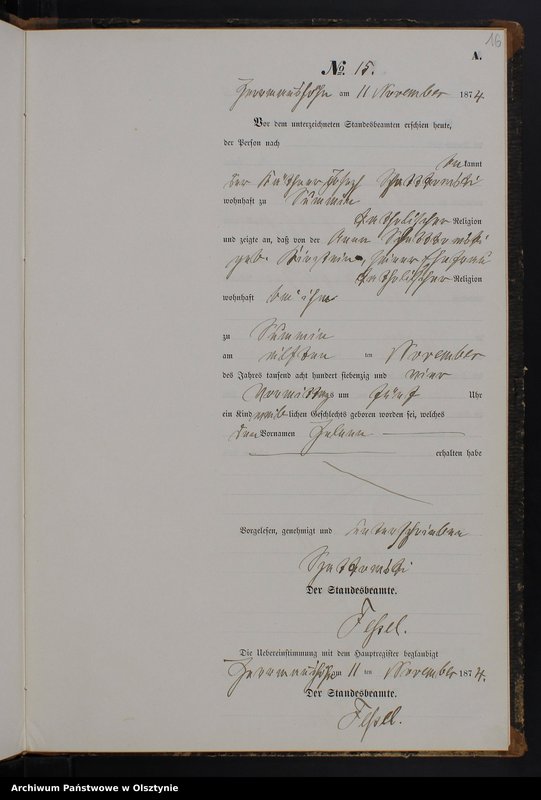 16
A.
No. 15.
am 11 November 1874
Vor dem unterzeichneten Standesbeamten erschien heute,
der Person nach
kannt
der Käthner Joseph
wohnhaft zu Summin
katholischer Religion
und zeigte an, daß von der Anna
geb. seiner Ehefrau
katholischer Religion
wohnhaft bei ihm
zu Summin
am elften ten November
des Jahres tausend acht hundert siebenzig und vier
Vormittags um fünf Uhr
ein Kind weiblichen Geschlechts geboren worden sei, welches
den Vornamen Helene
erhalten habe
Vorgelesen, genehmigt und unterschrieben
Der Standesbeamte.
Die Uebereinstimmung mit dem Hauptregister beglaubigt
am 11 ten November 1874.
Der Standesbeamte.
Archiwum Państwowe w Olsztynie